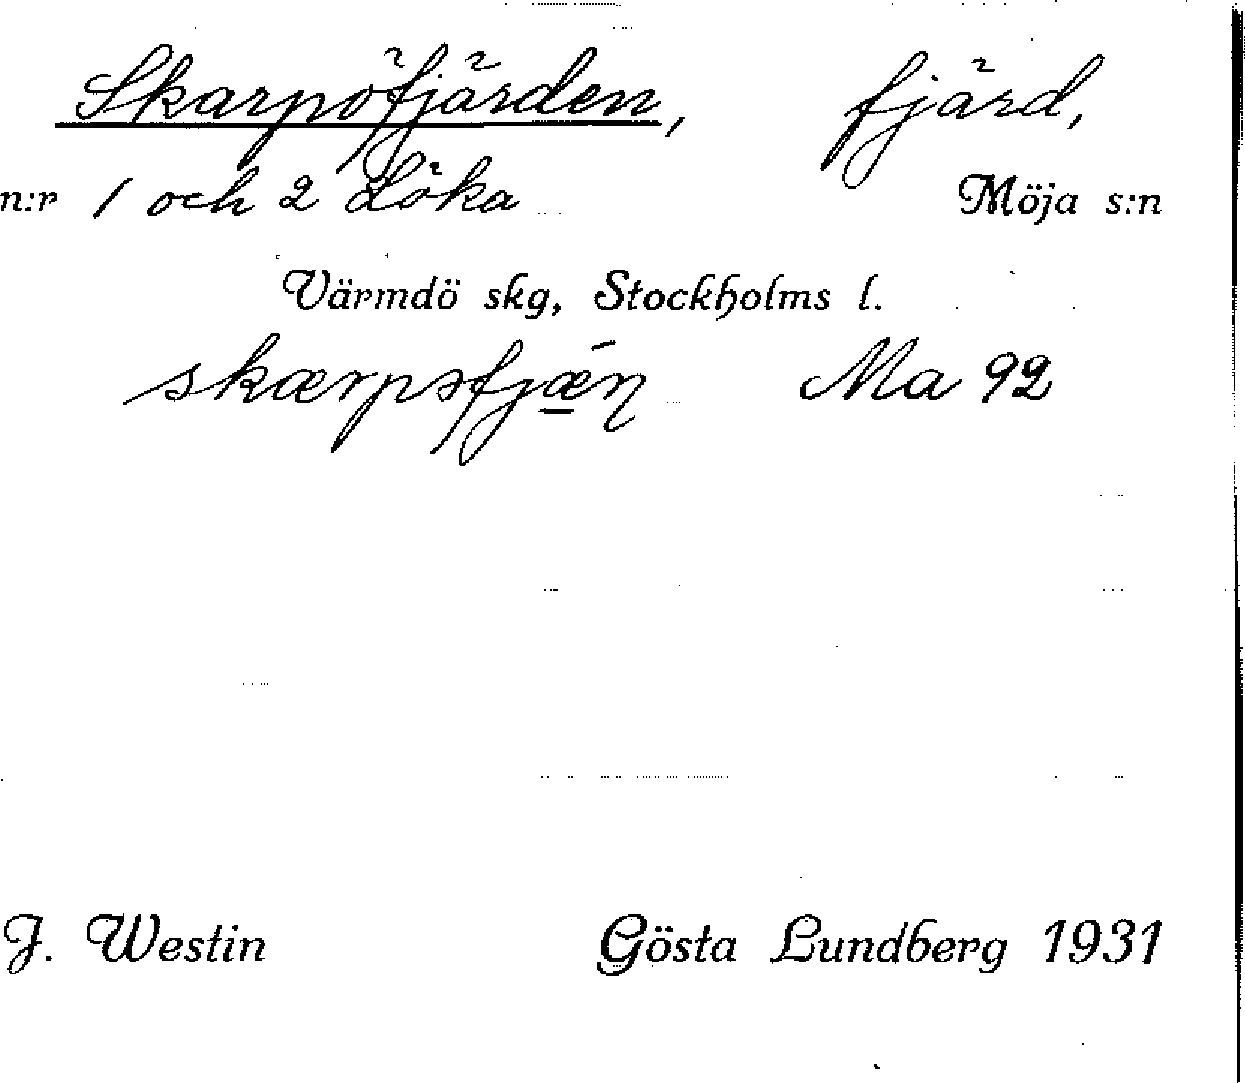 Skarpöfjärden, fjärd,
n:r 1 och 2 Löka Möja s:n
Värmdö skg, Stockholms l.
Ma 92
J. Westin Gösta Lundberg 1931